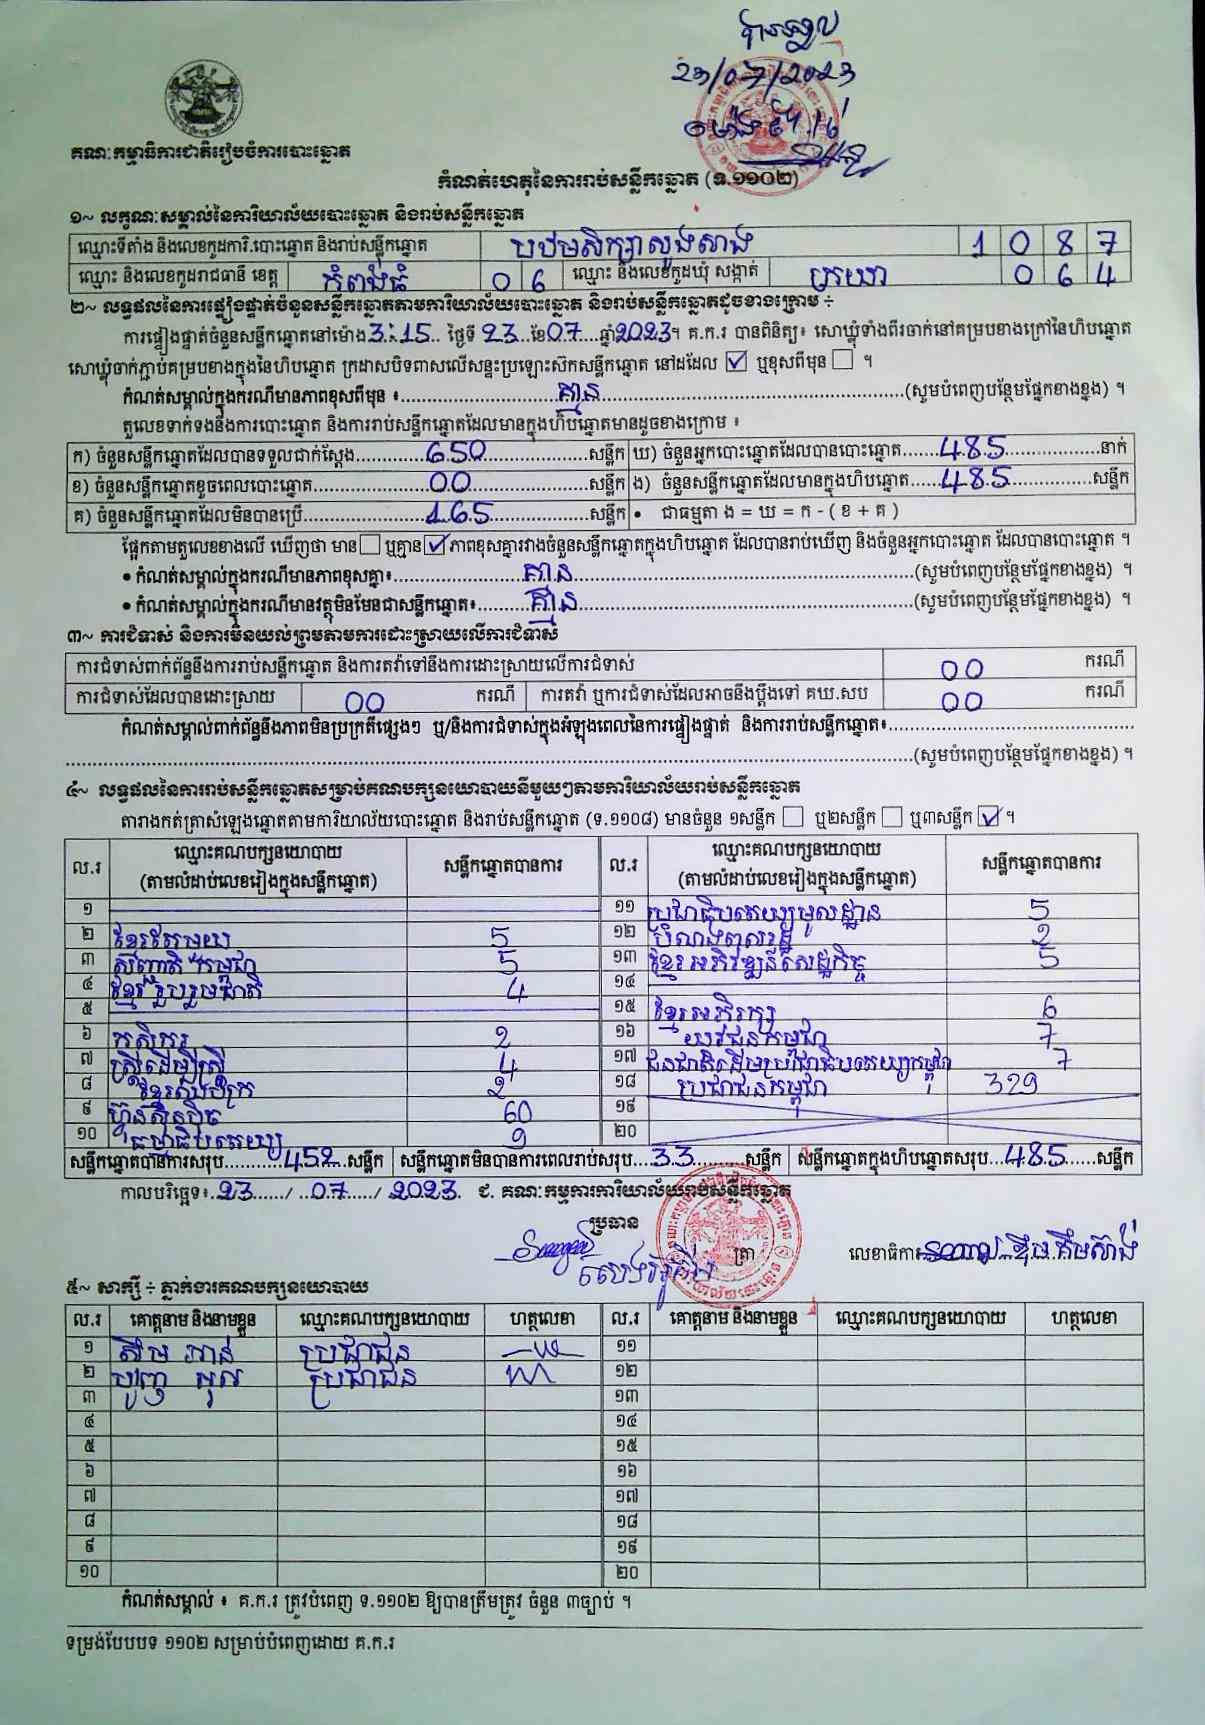 បានឃើញ
23/07/2023
គណៈកម្មាធិការជាតិរៀបចំការបោះឆ្នោត
កំណត់ហេតុនៃការរាប់សន្លឹកឆ្នោត (ទ.១១០២)
១~ លក្ខណៈសម្គាល់នៃការិយាល័យបោះឆ្នោត និងរាប់សន្លឹកឆ្នោត
ឈ្មោះទីតាំង និងលេខកូដការិ.បោះឆ្នោត និងរាប់សន្លឹកឆ្នោត បឋមសិក្សាសួងសាង 1 0 8 7
ឈ្មោះ និងលេខកូដរាជធានី ខេត្ត កំពង់ធំ 0 6 ឈ្មោះ និងលេខកូដឃុំ សង្កាត់ ក្រយា 0 6 4
២~ លទ្ធផលនៃការផ្ទៀងផ្ទាត់ចំនួនសន្លឹកឆ្នោតតាមការិយាល័យបោះឆ្នោត និងរាប់សន្លឹកឆ្នោតដូចខាងក្រោម ÷
ការផ្ទៀងផ្ទាត់ចំនួនសន្លឹកឆ្នោតនៅម៉ោង 3:15 ថ្ងៃទី 23 ខែ 07 ឆ្នាំ 2023។ គ.ក.រ បានពិនិត្យ៖ សោឃ្លុំទាំងពីរចាក់នៅគម្របខាងក្រៅនៃហិបឆ្នោត
សោឃ្លុំចាក់ភ្ជាប់គម្របខាងក្នុងនៃហិបឆ្នោត ក្រដាសបិទពាសលើសន្ទះប្រឡោះស៊កសន្លឹកឆ្នោត នៅដដែល ☑ ឬខុសពីមុន ☐ ។
កំណត់សម្គាល់ក្នុងករណីមានភាពខុសពីមុន ៖ គ្មាន (សូមបំពេញបន្ថែមផ្នែកខាងខ្នង) ។
តួលេខទាក់ទងនឹងការបោះឆ្នោត និងការរាប់សន្លឹកឆ្នោតដែលមានក្នុងហិបឆ្នោតមានដូចខាងក្រោម ៖
ក) ចំនួនសន្លឹកឆ្នោតដែលបានទទួលជាក់ស្តែង 650 សន្លឹក ឃ) ចំនួនអ្នកបោះឆ្នោតដែលបានបោះឆ្នោត 485 នាក់
ខ) ចំនួនសន្លឹកឆ្នោតខូចពេលបោះឆ្នោត 00 សន្លឹក ង) ចំនួនសន្លឹកឆ្នោតដែលមានក្នុងហិបឆ្នោត 485 សន្លឹក
គ) ចំនួនសន្លឹកឆ្នោតដែលមិនបានប្រើ 165 សន្លឹក • ជាធម្មតា ង = ឃ = ក - ( ខ + គ )
ផ្អែកតាមតួលេខខាងលើ ឃើញថា មាន ☐ ឬគ្មាន ☑ ភាពខុសគ្នារវាងចំនួនសន្លឹកឆ្នោតក្នុងហិបឆ្នោត ដែលបានរាប់ឃើញ និងចំនួនអ្នកបោះឆ្នោត ដែលបានបោះឆ្នោត ។
• កំណត់សម្គាល់ក្នុងករណីមានភាពខុសគ្នា៖ គ្មាន (សូមបំពេញបន្ថែមផ្នែកខាងខ្នង) ។
• កំណត់សម្គាល់ក្នុងករណីមានវត្ថុមិនមែនជាសន្លឹកឆ្នោត៖ គ្មាន (សូមបំពេញបន្ថែមផ្នែកខាងខ្នង) ។
៣~ ការជំទាស់ និងការមិនយល់ព្រមតាមការដោះស្រាយលើការជំទាស់
ការជំទាស់ពាក់ព័ន្ធនឹងការរាប់សន្លឹកឆ្នោត និងការតវ៉ាទៅនឹងការដោះស្រាយលើការជំទាស់ 00 ករណី
ការជំទាស់ដែលបានដោះស្រាយ 00 ករណី ការតវ៉ា ឬការជំទាស់ដែលអាចនឹងប្តឹងទៅ គឃ.សប 00 ករណី
កំណត់សម្គាល់ពាក់ព័ន្ធនឹងភាពមិនប្រក្រតីផ្សេងៗ ឬ/និងការជំទាស់ក្នុងអំឡុងពេលនៃការផ្ទៀងផ្ទាត់ និងការរាប់សន្លឹកឆ្នោត៖
(សូមបំពេញបន្ថែមផ្នែកខាងខ្នង) ។
៤~ លទ្ធផលនៃការរាប់សន្លឹកឆ្នោតសម្រាប់គណបក្សនយោបាយនីមួយៗតាមការិយាល័យរាប់សន្លឹកឆ្នោត
តារាងកត់ត្រាសំឡេងឆ្នោតតាមការិយាល័យបោះឆ្នោត និងរាប់សន្លឹកឆ្នោត (ទ.១១០៨) មានចំនួន ១សន្លឹក ☐ ឬ២សន្លឹក ☐ ឬ៣សន្លឹក ☑ ។
ល.រ ឈ្មោះគណបក្សនយោបាយ (តាមលំដាប់លេខរៀងក្នុងសន្លឹកឆ្នោត) សន្លឹកឆ្នោតបានការ ល.រ ឈ្មោះគណបក្សនយោបាយ (តាមលំដាប់លេខរៀងក្នុងសន្លឹកឆ្នោត) សន្លឹកឆ្នោតបានការ
១ ១១ ប្រជាធិបតេយ្យមូលដ្ឋាន 5
២ ខ្មែរតែមួយ 5 ១២ បំណងពលរដ្ឋ 2
៣ សញ្ជាតិកម្ពុជា 5 ១៣ ខ្មែរអភិវឌ្ឍន៍សេដ្ឋកិច្ច 5
៤ ខ្មែររួបរួមជាតិ 4 ១៤
៥ ១៥ ខ្មែរអភិរក្ស 6
៦ កសិករ 2 ១៦ យុវជនកម្ពុជា 7
៧ ស្ត្រីដើម្បីស្ត្រី 4 ១៧ ជនជាតិដើមប្រជាធិបតេយ្យកម្ពុជា 7
៨ ខ្មែរឈប់ក្រ 2 ១៨ ប្រជាជនកម្ពុជា 329
៩ ហ៊្វុនស៊ិនប៉ិច 60 ១៩
១០ ធម្មាធិបតេយ្យ 9 ២០
សន្លឹកឆ្នោតបានការសរុប 452 សន្លឹក សន្លឹកឆ្នោតមិនបានការពេលរាប់សរុប 33 សន្លឹក សន្លឹកឆ្នោតក្នុងហិបឆ្នោតសរុប 485 សន្លឹក
កាលបរិច្ឆេទ៖ 23 / 07 / 2023 ជ. គណៈកម្មការការិយាល័យរាប់សន្លឹកឆ្នោត
ប្រធាន
ត្រា លេខាធិការ
៥~ សាក្សី ÷ ភ្នាក់ងារគណបក្សនយោបាយ
ល.រ គោត្តនាម និងនាមខ្លួន ឈ្មោះគណបក្សនយោបាយ ហត្ថលេខា ល.រ គោត្តនាម និងនាមខ្លួន ឈ្មោះគណបក្សនយោបាយ ហត្ថលេខា
១ ប្រជាជន ១១
២ ប្រជាជន ១២
៣ ១៣
៤ ១៤
៥ ១៥
៦ ១៦
៧ ១៧
៨ ១៨
៩ ១៩
១០ ២០
កំណត់សម្គាល់ ៖ គ.ក.រ ត្រូវបំពេញ ទ.១១០២ ឱ្យបានត្រឹមត្រូវ ចំនួន ៣ច្បាប់ ។
ទម្រង់បែបបទ ១១០២ សម្រាប់បំពេញដោយ គ.ក.រ